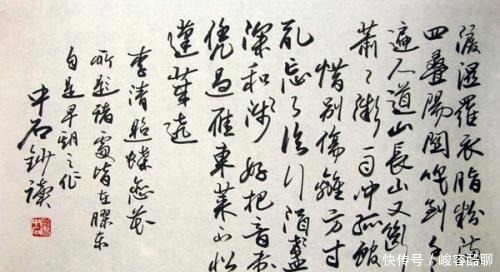 淚濕羅衣脂粉滿
四疊陽關唱到千千
遍人道山長山又斷
蕭〻微雨聞孤館
惜別傷離方寸
亂忘了臨行酒盞
深和淺好把音書
憑過雁東萊不似
蓬萊遠
李清照蝶戀花
所題諸處皆在膠東
自是早期之作
中石鈔讀
快传号 / 峻容酷聊